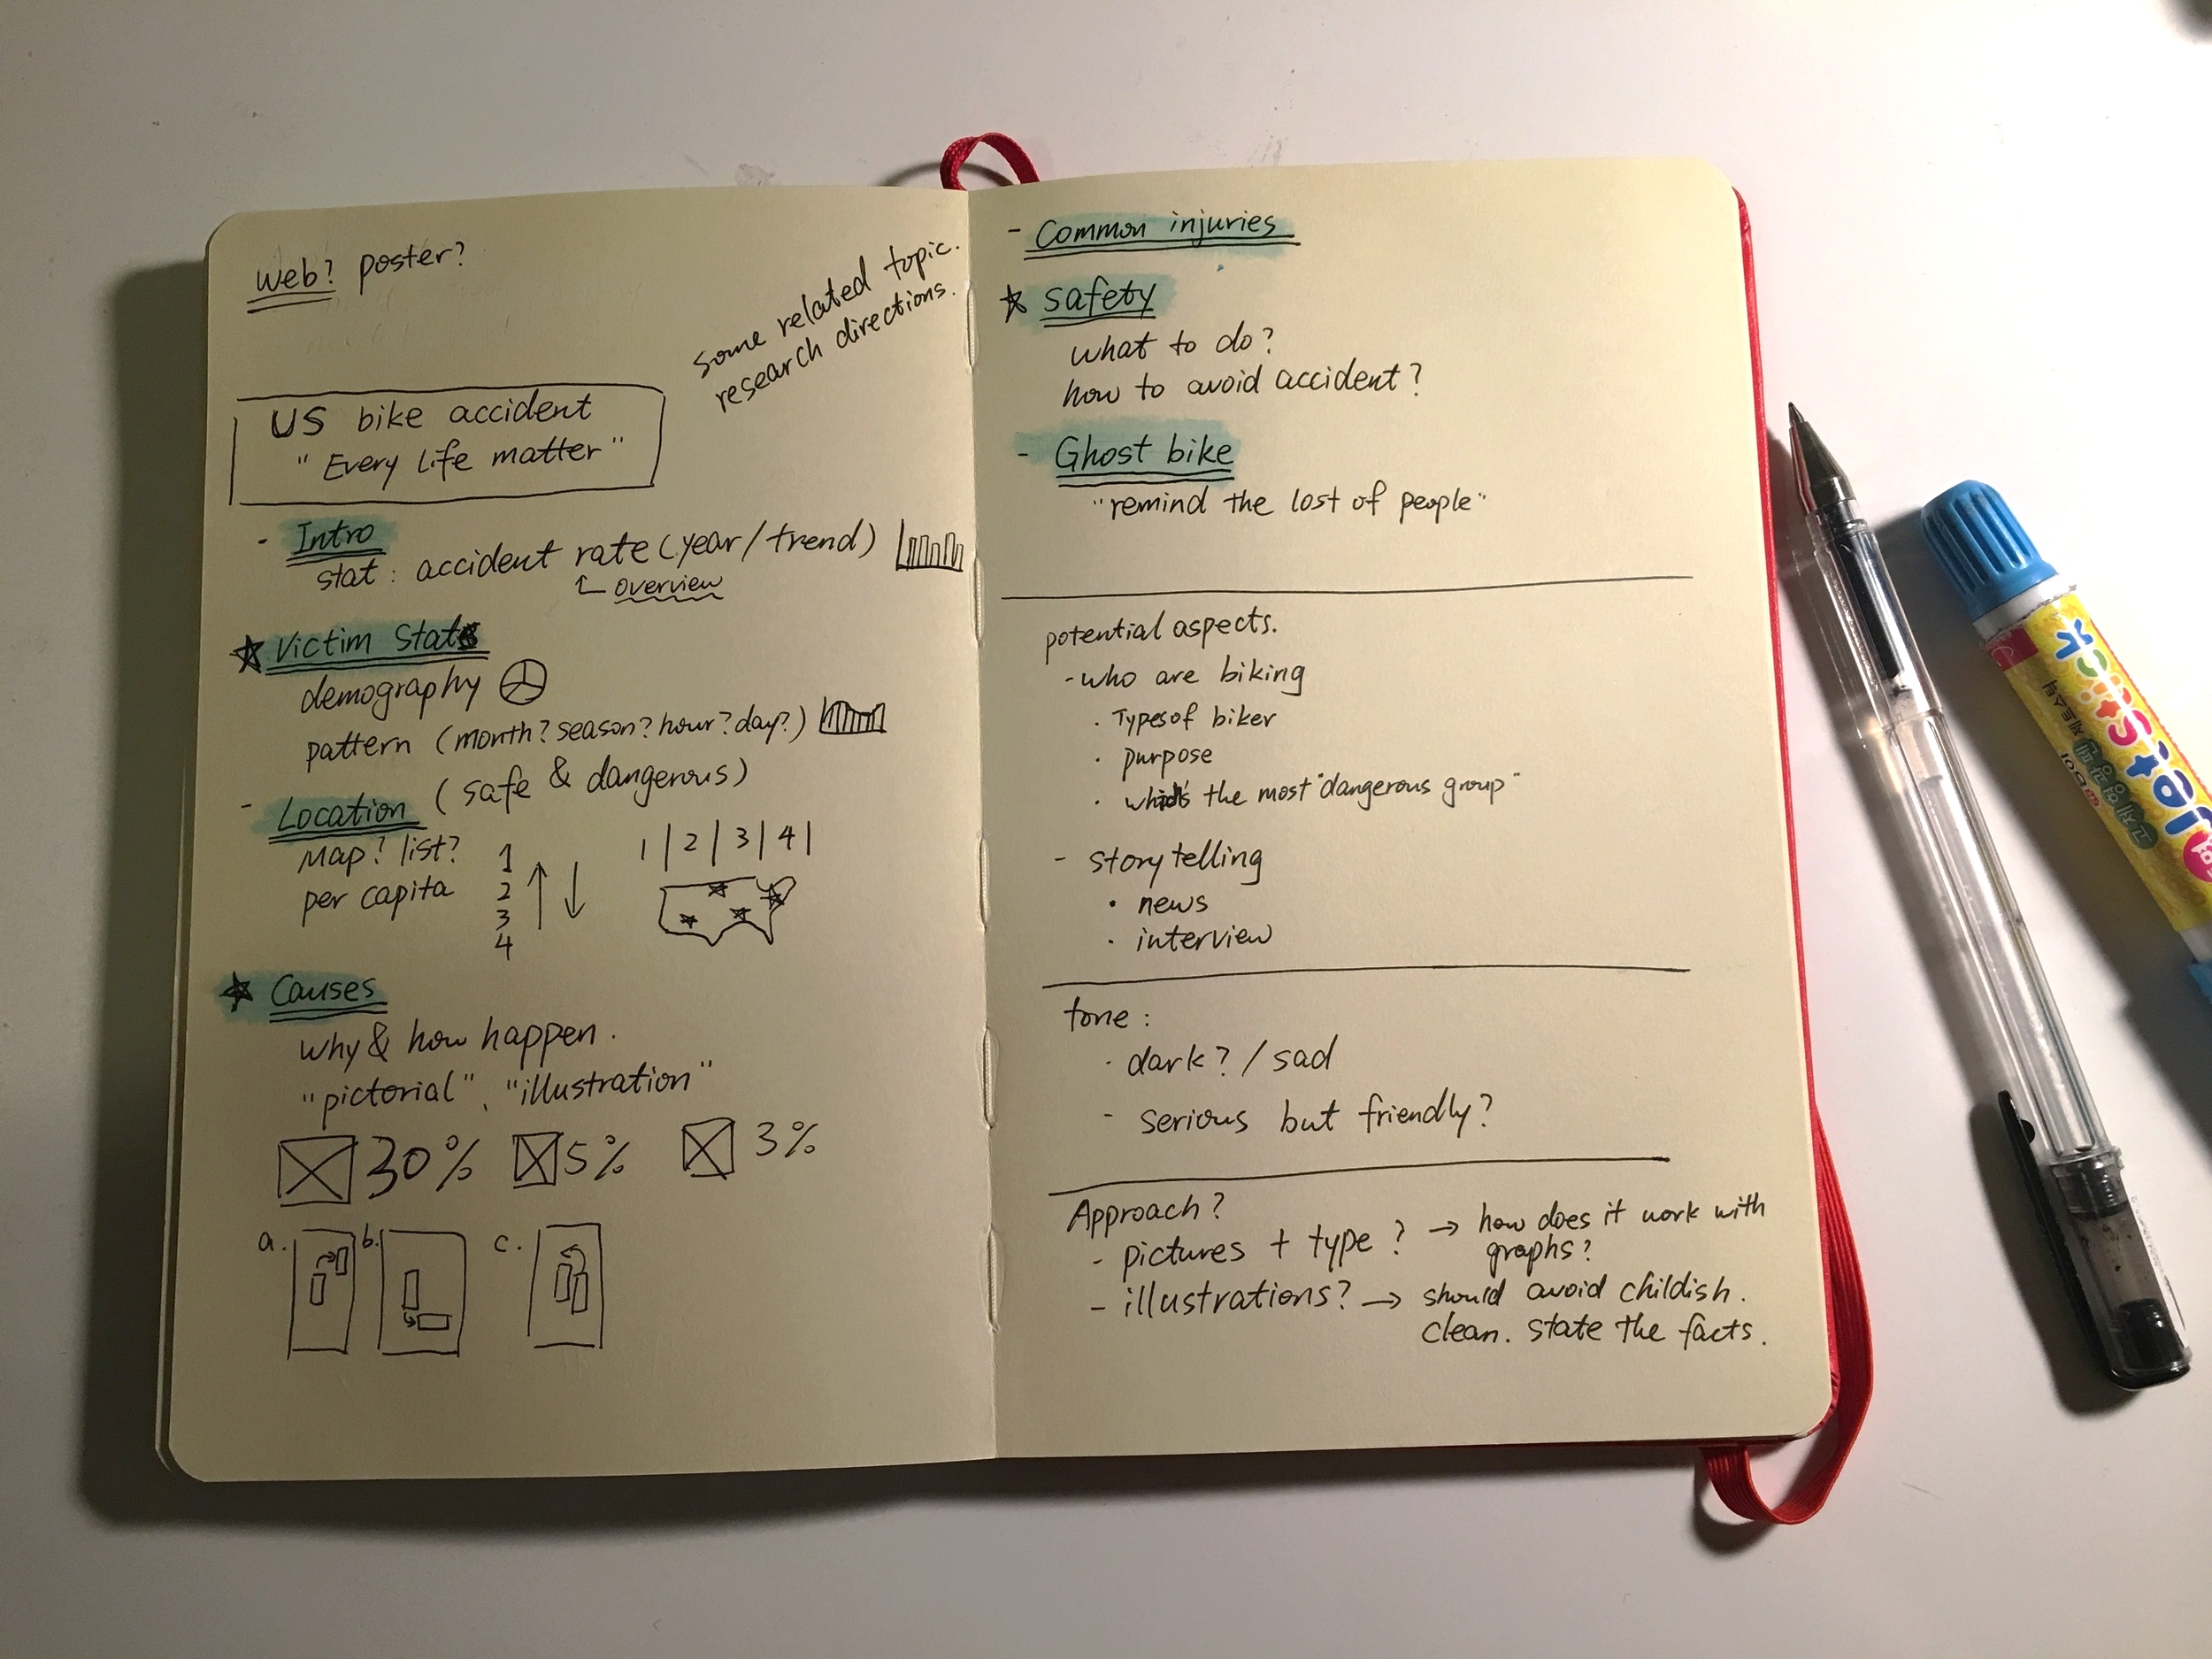 web? poster?
some related topic.
research directions.
US bike accident
"Every life matter"
- Intro
stat: accident rate (year/trend)
overview
Victim Stats
demography
pattern (month? season? hour? day?)
- Location (safe & dangerous)
Map? list?
per capita
1
2
3
4
1 | 2 | 3 | 4 |
Causes
why & how happen.
"pictorial", "illustration"
30% 5% 3%
a. b. c.
- Common injuries
safety
what to do?
how to avoid accident?
- Ghost bike
"remind the lost of people"
potential aspects.
- who are biking
· Types of biker
· purpose
· the most "dangerous group"
- storytelling
· news
· interview
tone:
· dark? / sad
- serious but friendly?
Approach?
- pictures + type? → how does it work with
graphs?
- illustrations? → should avoid childish.
clean. state the facts.